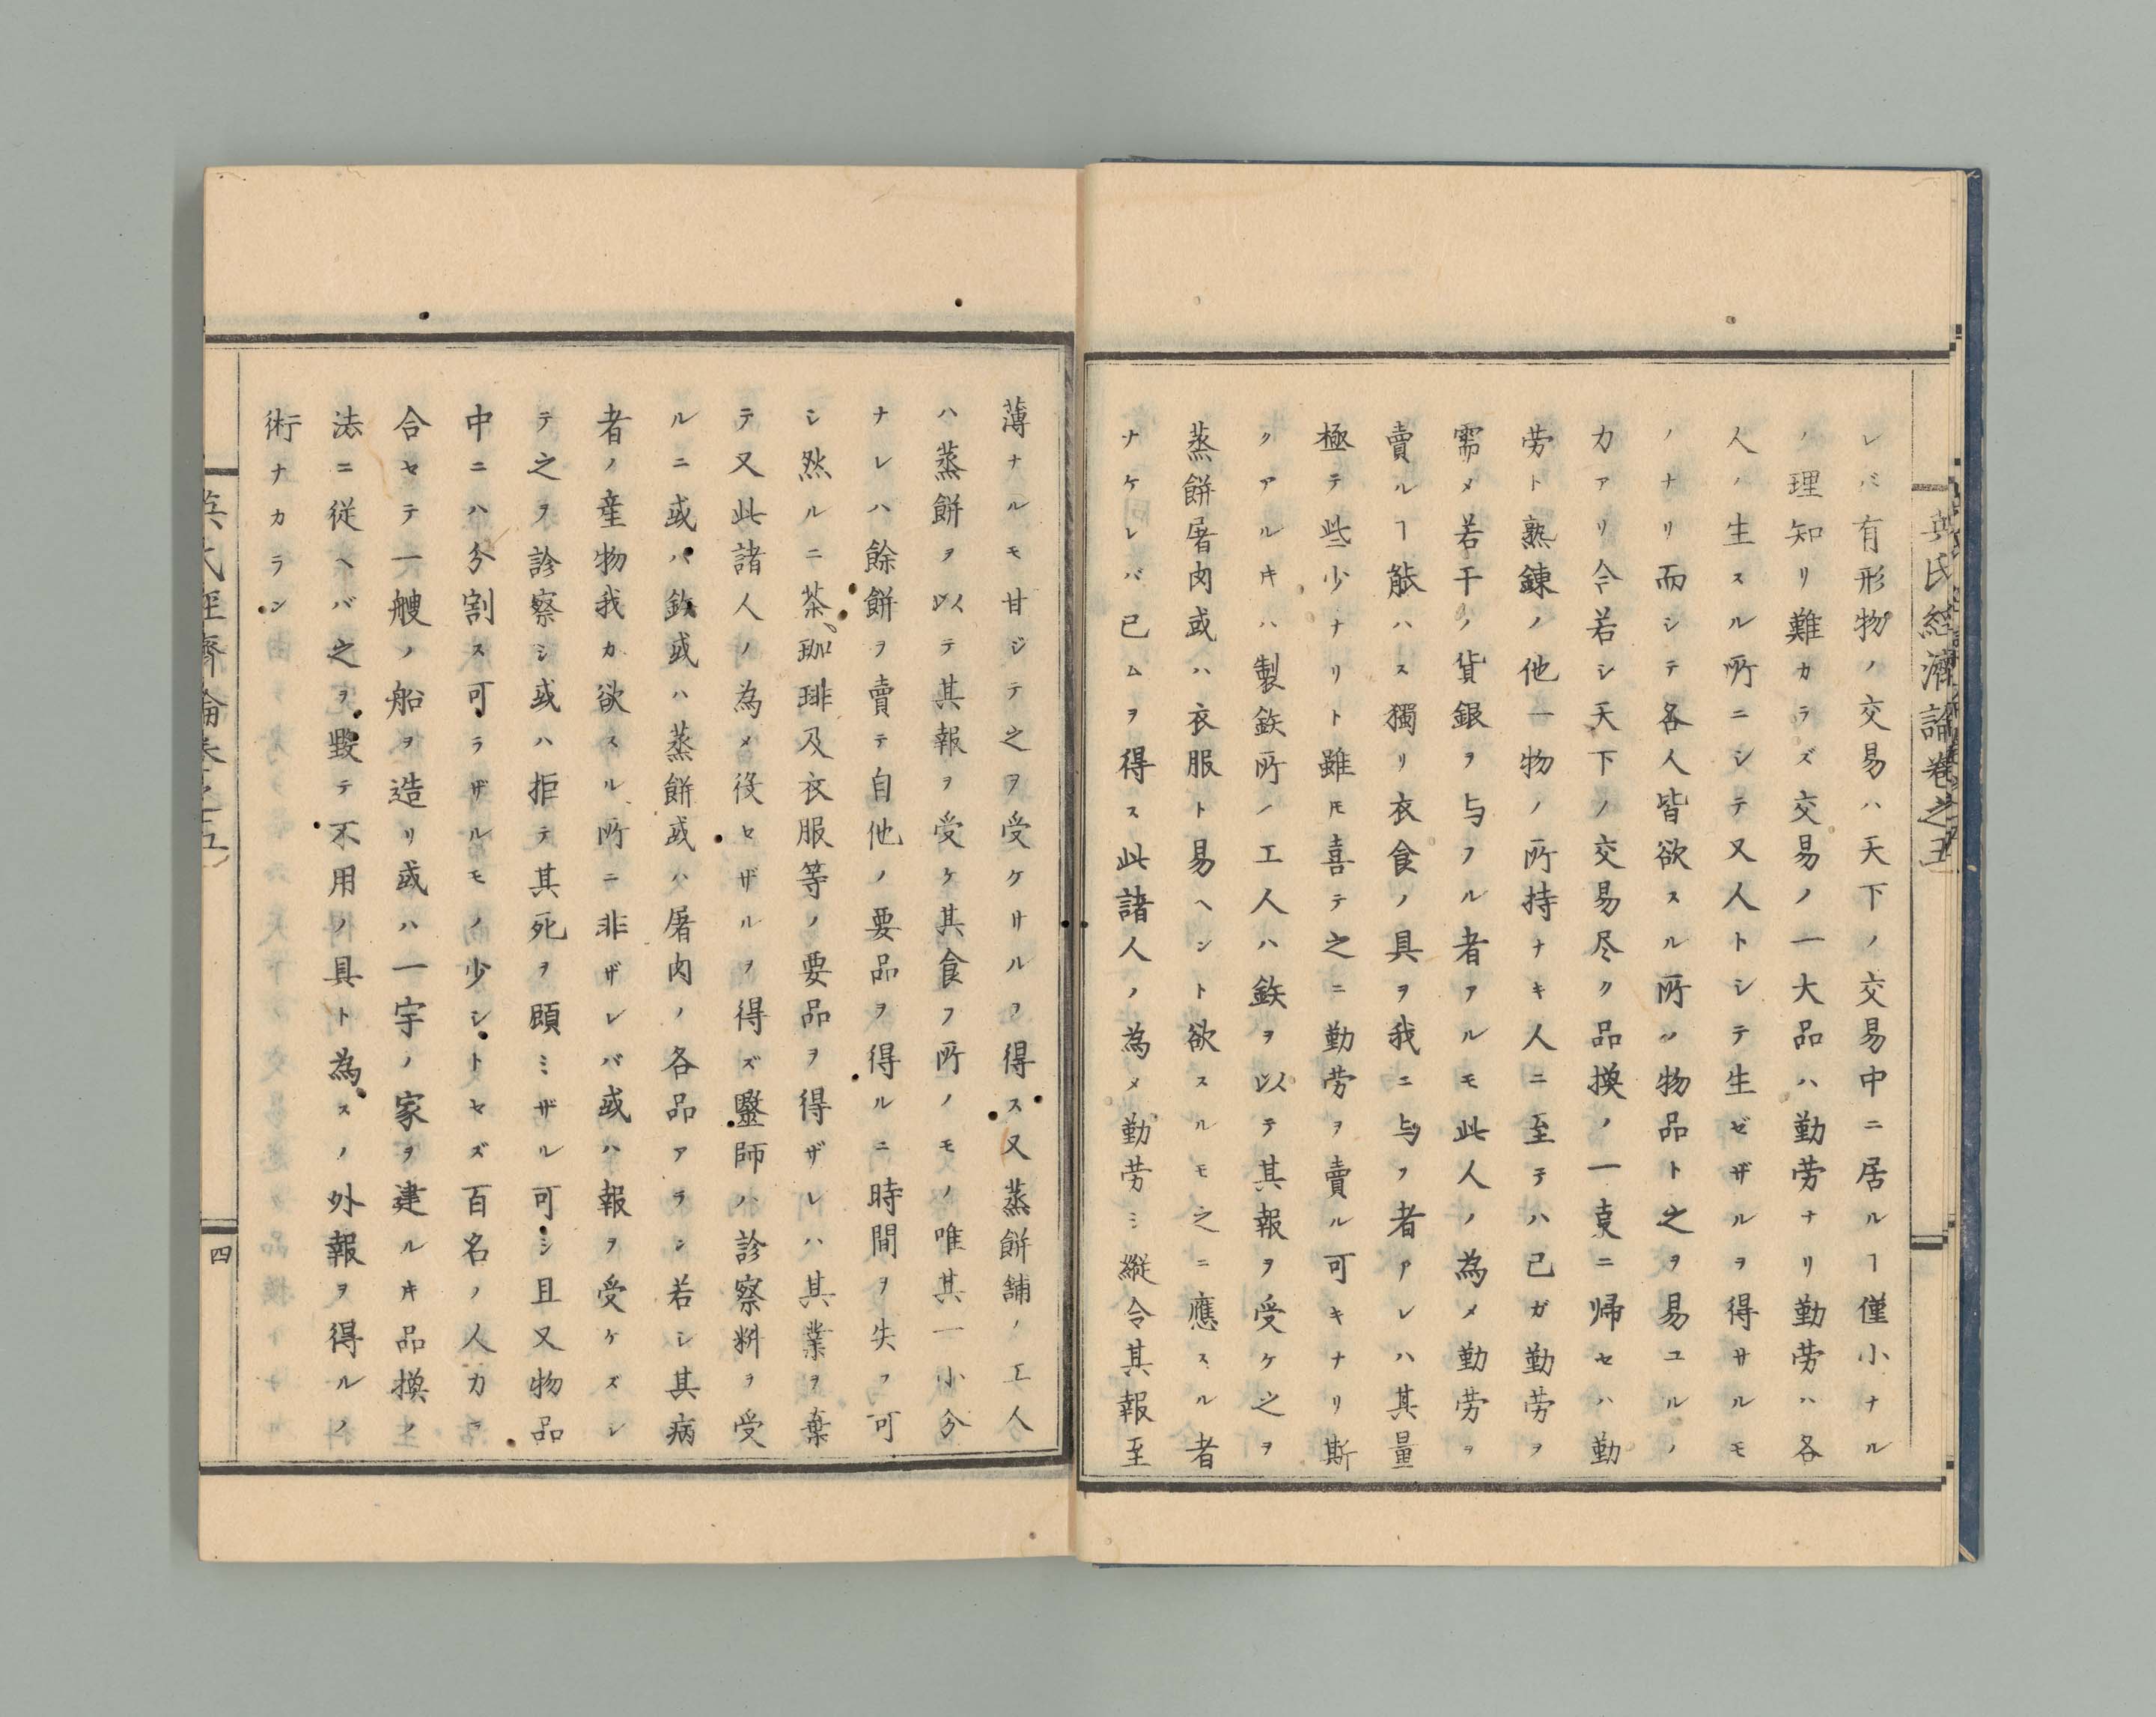 英氏経濟論卷之五
レバ有形物ノ交易ハ天下ノ交易中ニ居ルヿ僅小ナル
ノ理知リ難カラズ交易ノ一大品ハ勤劳ナリ勤劳ハ各
人ノ生スル所ニシテ又人トシテ生ゼザルヲ得サルモ
ノナリ而シテ各人皆欲スル所ノ物品ト之ヲ易ユルノ
力アリ今若シ天下ノ交易尽ク品換ノ一袁ニ帰セハ勤
劳ト熟錬ノ他一物ノ所持ナキ人ニ至テハ已ガ勤劳ヲ
需メ若干ノ貨銀ヲ与フル者アルモ此人ノ為メ勤劳ヲ
賣ルヿ能ハス獨リ衣食ノ具ヲ我ニ与フ者アレハ其量
極テ些少ナリト雖𪜈喜テ之ニ勤劳ヲ賣ル可キナリ斯
クアルキハ製鉃所ノ工人ハ鉃ヲ以テ其報ヲ受ケ之ヲ
蒸餅屠肉或ハ衣服ト易ヘント欲スルモ之ニ應スル者
ナケレバ已ムヲ得ス此諸人ノ為メ勤劳ミ縦令其報至
薄ナルモ甘ジテ之ヲ受ケサルヲ得ス又蒸餅舗ノ工人
ハ蒸餅ヲ以テ其報ヲ受ケ其食フ所ノモノ唯其一小分
ナレハ餘餅ヲ賣テ自他ノ要品ヲ得ルニ時間ヲ失フ可
シ然ルニ茶、珈琲及衣服等ノ要品ヲ得ザレハ其業ヲ棄
テ又此諸人ノ為メ役セザルヲ得ズ鑒師ハ診察料ヲ受
ルニ或ハ鉃或ハ蒸餅或ハ屠肉ノ各品アラン若シ其病
者ノ産物我カ欲スル所ニ非ザレバ或ハ報ヲ受ケズシ
テ之ヲ診察シ或ハ拒テ其死ヲ顧ミザル可シ且又物品
中ニハ分割ス可ラザルモノ少シトセズ百名ノ人力ヲ
合セテ一艘ノ船ヲ造リ或ハ一宇ノ家ヲ建ルキ品換ノ
法ニ従ヘバ之ヲ毀テ不用ノ具ト為スノ外報ヲ得ルノ
術ナカラン
英氏経濟論卷之五
四